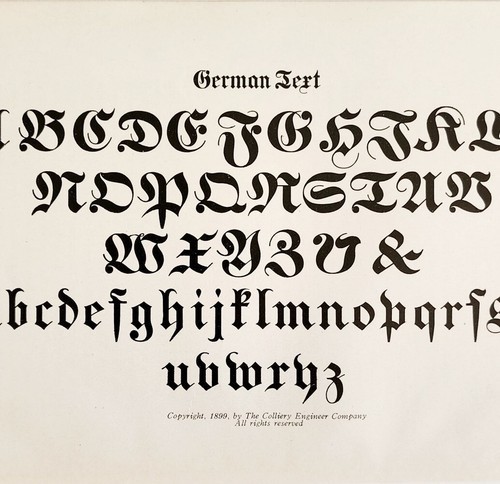 German Text
BCDEFGHJK
NOPQRSTUV
WXYZ &
bcdefghijklmnopqrſs
uvwxyz
Copyright, 1899, by The Colliery Engineer Company
All rights reserved